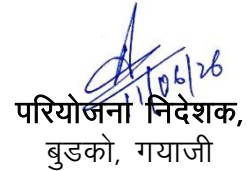 11/06/26
परियोजना निदेशक,
बुडको, गयाजी